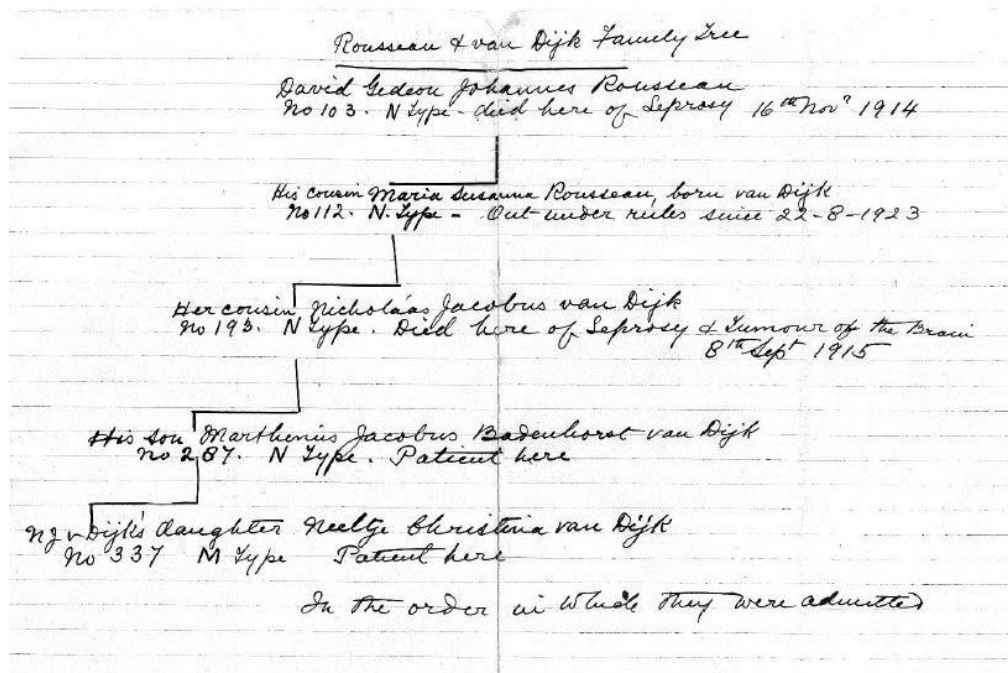 Rousseau & van Dijk Family Tree
David Gedeon Johannes Rousseau
No 103. N Type - died here of Leprosy 16th Novr 1914
His cousin Maria Susanna Rousseau, born van Dijk
No 112. N. Type - Out under rules since 22-8-1923
Her cousin Nicholaas Jacobus van Dijk
No 193. N Type. Died here of Leprosy & Tumour of the Brain
8th Sept 1915
His son Marthinus Jacobus Badenhorst van Dijk
No 287. N Type. Patient here
N J v Dijk's daughter Neeltje Christina van Dijk
No 337 M Type Patient here
In the order in which they were admitted